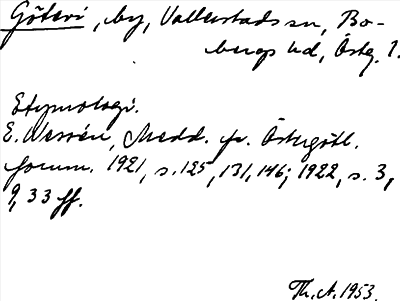 Götevi, by, Vallerstads sn, Bo-
bergs hd, Östg. l.
Etymologi.
E. Wessén, Medd. fr. Östergötl.
fornm. 1921, s. 125, 131, 146; 1922, s. 3,
9, 33 ff.
Th. A. 1953.